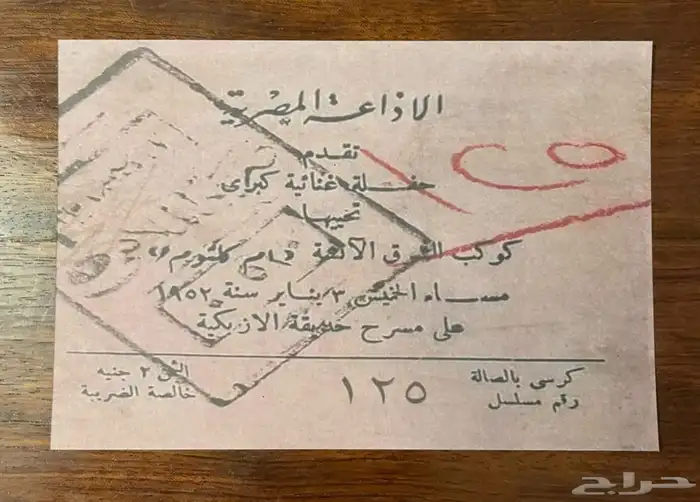 الاذاعة المصرية
تقدم
حفلة غنائية كبرى
تحييها
كوكب الشرق الآنسة "أم كلثوم"
مساء الخميس ٣ يناير سنة ١٩٥٢
على مسرح حديقة الازبكية
كرسى بالصالة
رقم مسلسل
١٢٥
الثمن ٢ جنيه
خالصة الضريبة
حراج